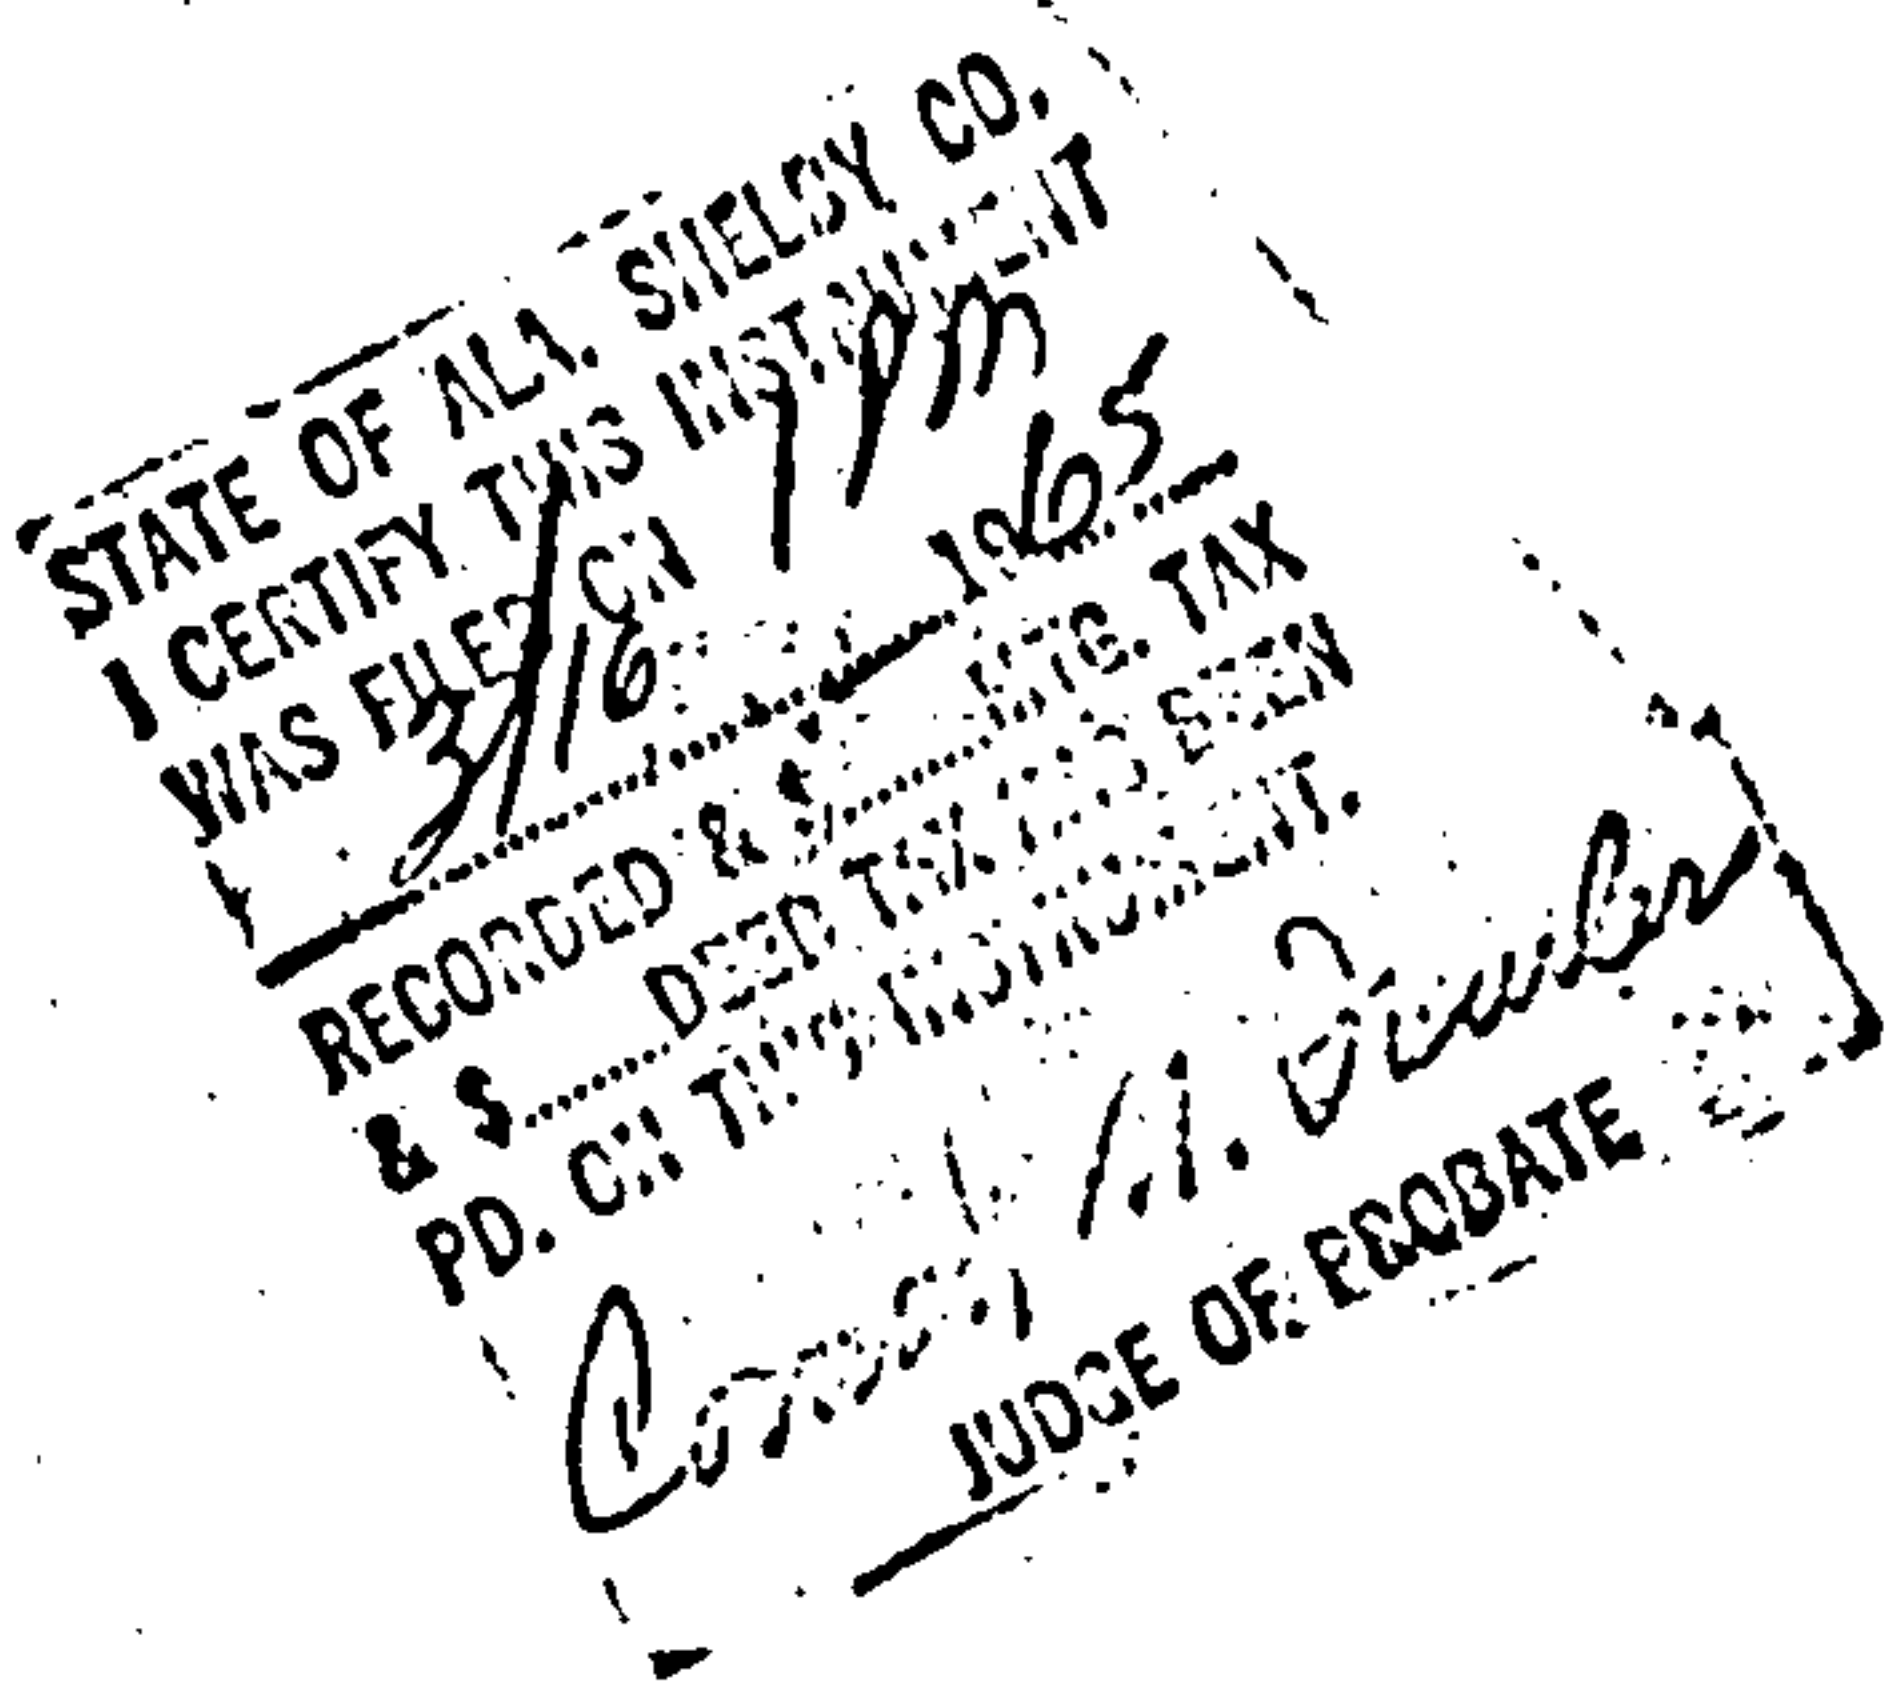 STATE OF ALA. SHELBY CO.
I CERTIFY THIS INSTRUMENT
WAS FILED ON 1 PM
2/16 1965
RECORDED & $ MTG. TAX
& $ DEED TAX HAS BEEN
PD. ON THIS INSTRUMENT.
Conrad M. Fowler
JUDGE OF PROBATE